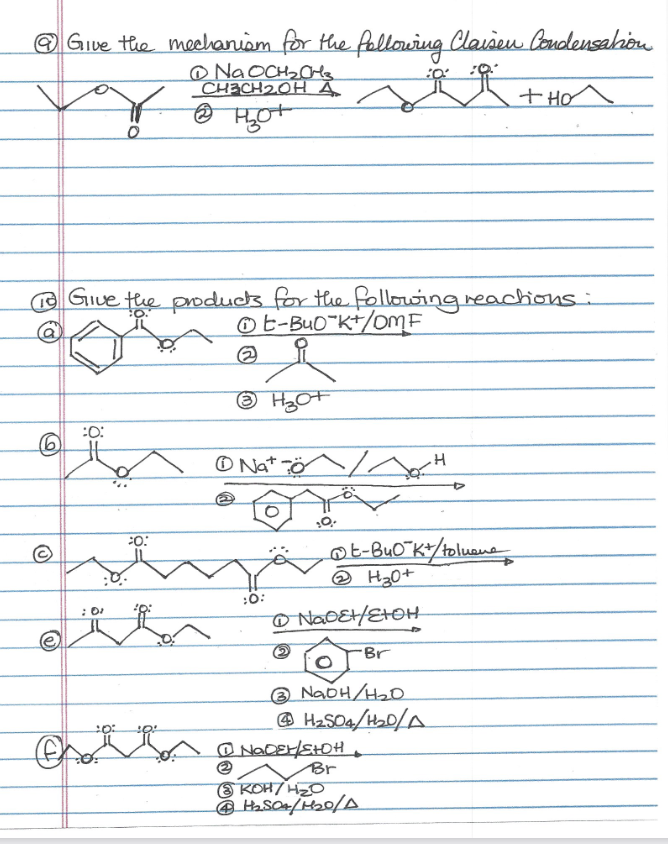 ⑨ Give the mechanism for the following Claisen Condensation
① NaOCH2CH3
CH3CH2OH Δ
② H3O+
:O: :O:
O
O
O
+ HO
⑩ Give the products for the following reactions:
ⓐ :O:
O
① t-BuO-K+/DMF
② O
③ H3O+
ⓑ :O:
O
① Na+ -O / O H
② O
:O:
ⓒ :O:
:O:
O
:O:
① t-BuO-K+/toluene
② H3O+
ⓔ :O: :O:
:O:
① NaOEt/EtOH
② Br
③ NaOH/H2O
④ H2SO4/H2O/Δ
ⓕ :O: :O:
:O: :O:
① NaOEt/EtOH
② Br
③ KOH/H2O
④ H2SO4/H2O/Δ